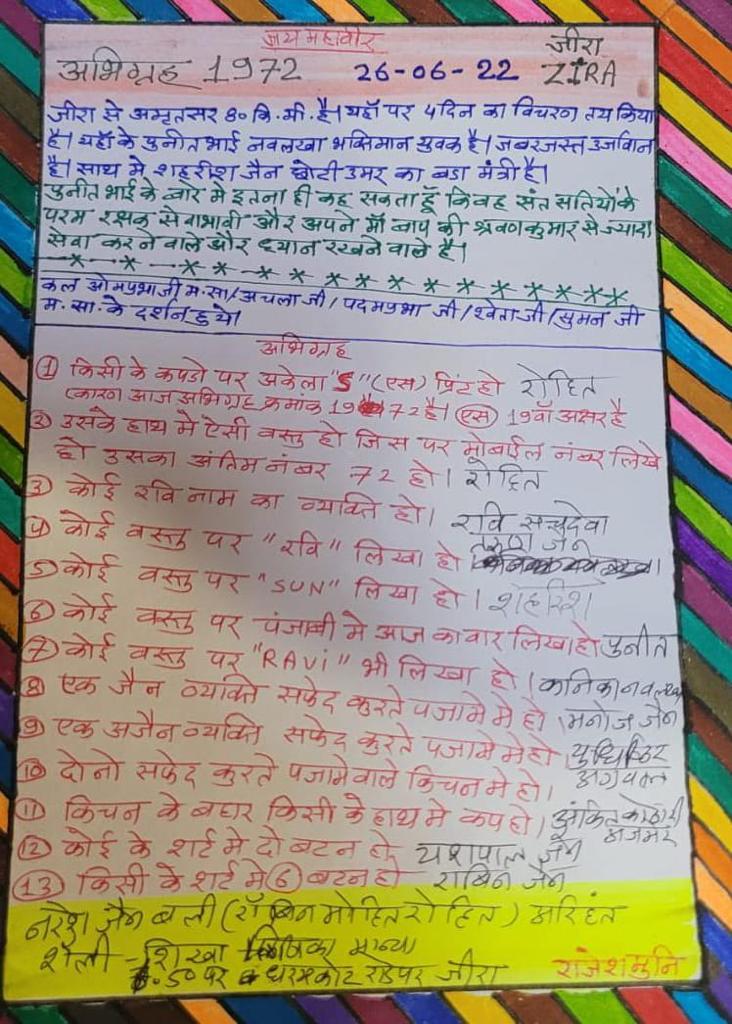 जय महावीर
जीरा
अभिग्रह 1972 26-06-22 ZIRA
जीरा से अमृतसर 80 कि.मी. है। यहाँ पर 4 दिन का विचरण तय किया
है। यहाँ के पुनीत भाई नवलखा भक्तिमान युवक है। जबरजस्त उर्जावान
है। साथ मे शहरीश जैन छोटी उमर का बडा मंत्री है।
पुनीत भाई के बारे मे इतना ही कह सकता हूँ कि वह संत सतियों के
परम रक्षक सेवाभावी और अपने माँ बाप की श्रवणकुमार से ज्यादा
सेवा करने वाले और ध्यान रखने वाले है।
कल ओमप्रभाजी म.सा/अचला जी/पदमप्रभा जी/श्वेताजी/सुमन जी
म.सा. के दर्शन हुये।
अभिग्रह
① किसी के कपडो पर अकेला "S" (एस) प्रिंट हो रोहित
(कारण आज अभिग्रह क्रमांक 1972 है। एस 19वाँ अक्षर है
② उसके हाथ मे ऐसी वस्तु हो जिस पर मोबाईल नंबर लिखे
हो उसका अंतिम नंबर 72 हो। रोहित
③ कोई रवि नाम का व्यक्ति हो। रवि सचुदेवा
④ कोई वस्तु पर "रवि" लिखा हो जैन
⑤ कोई वस्तु पर "SUN" लिखा हो। शहरिश
⑥ कोई वस्तु पर पंजाबी मे आज का वार लिखा हो पुनीत
⑦ कोई वस्तु पर "RAVi" भी लिखा हो। कनिका नवलखा
⑧ एक जैन व्यक्ति सफेद कुरते पजामे मे हो। मनोज जैन
⑨ एक अजैन व्यक्ति सफेद कुरते पजामे मे हो। युधिष्ठिर
⑩ दोनो सफेद कुरते पजामे वाले किचन मे हो। अग्रवाल
⑪ किचन के बहार किसी के हाथ मे कप हो। अंकित कोठारी
अजमेर
⑫ कोई के शर्ट मे दो बटन हो यशपाल जैन
⑬ किसी के शर्ट मे ⑥ बटन हो राबिन जैन
नरेश जैन बली (रॉबिन मोहित रोहित) अरिहंत
शैली - शिखा मान्या
धरमकोट रोड पर जीरा राजेशमुनि